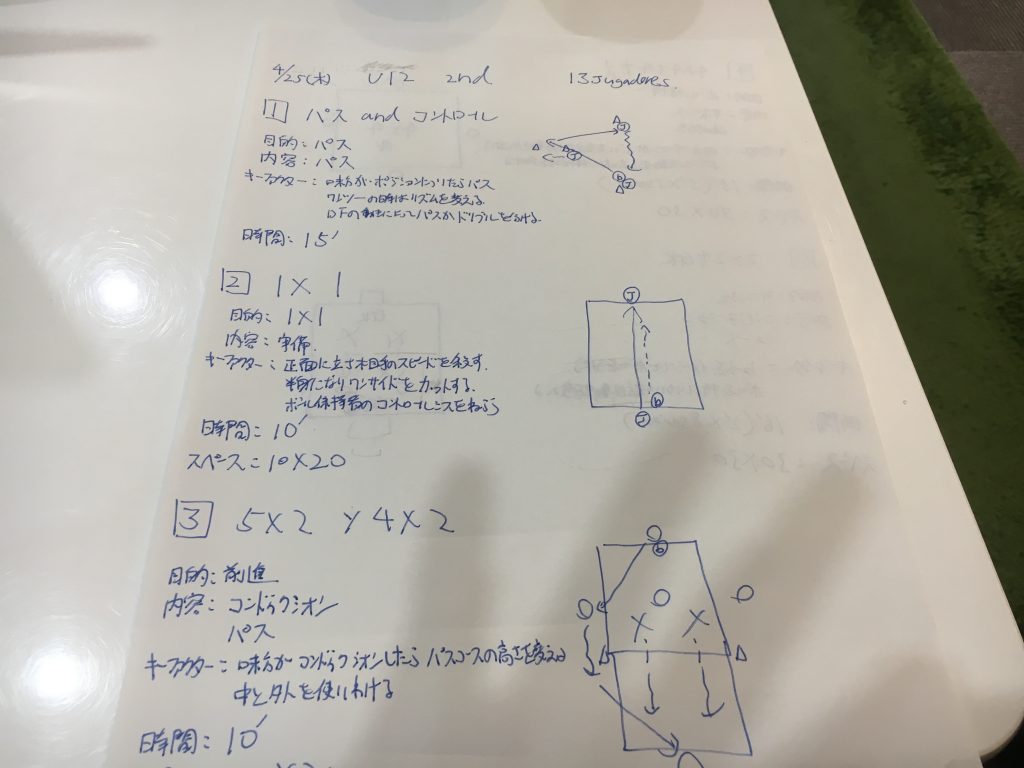 4/25(木) U12 2nd 13 Jugadores.
1 パス and コントロール
目的：パス
内容：パス
キーファクター：味方がポジションにつけたらパス
ワンツーの時はリズムを変える
DFの動きによってパスかドリブルを
時間：15′
2 1×1
目的：1×1
内容：守備
キーファクター：正面に立ち相手のスピードを
半身になりワンサイドをカットする
ボール保持者のコントロールミスをねらう
時間：10′
スペース：10×20
3 5×2 y 4×2
目的：前進
内容：コンドゥクシオン
パス
キーファクター：味方がコンドゥクシオンしたらパスコースの高さを変える
中と外を使いわける
時間：10′
J
J
b
J
J
b
J
b